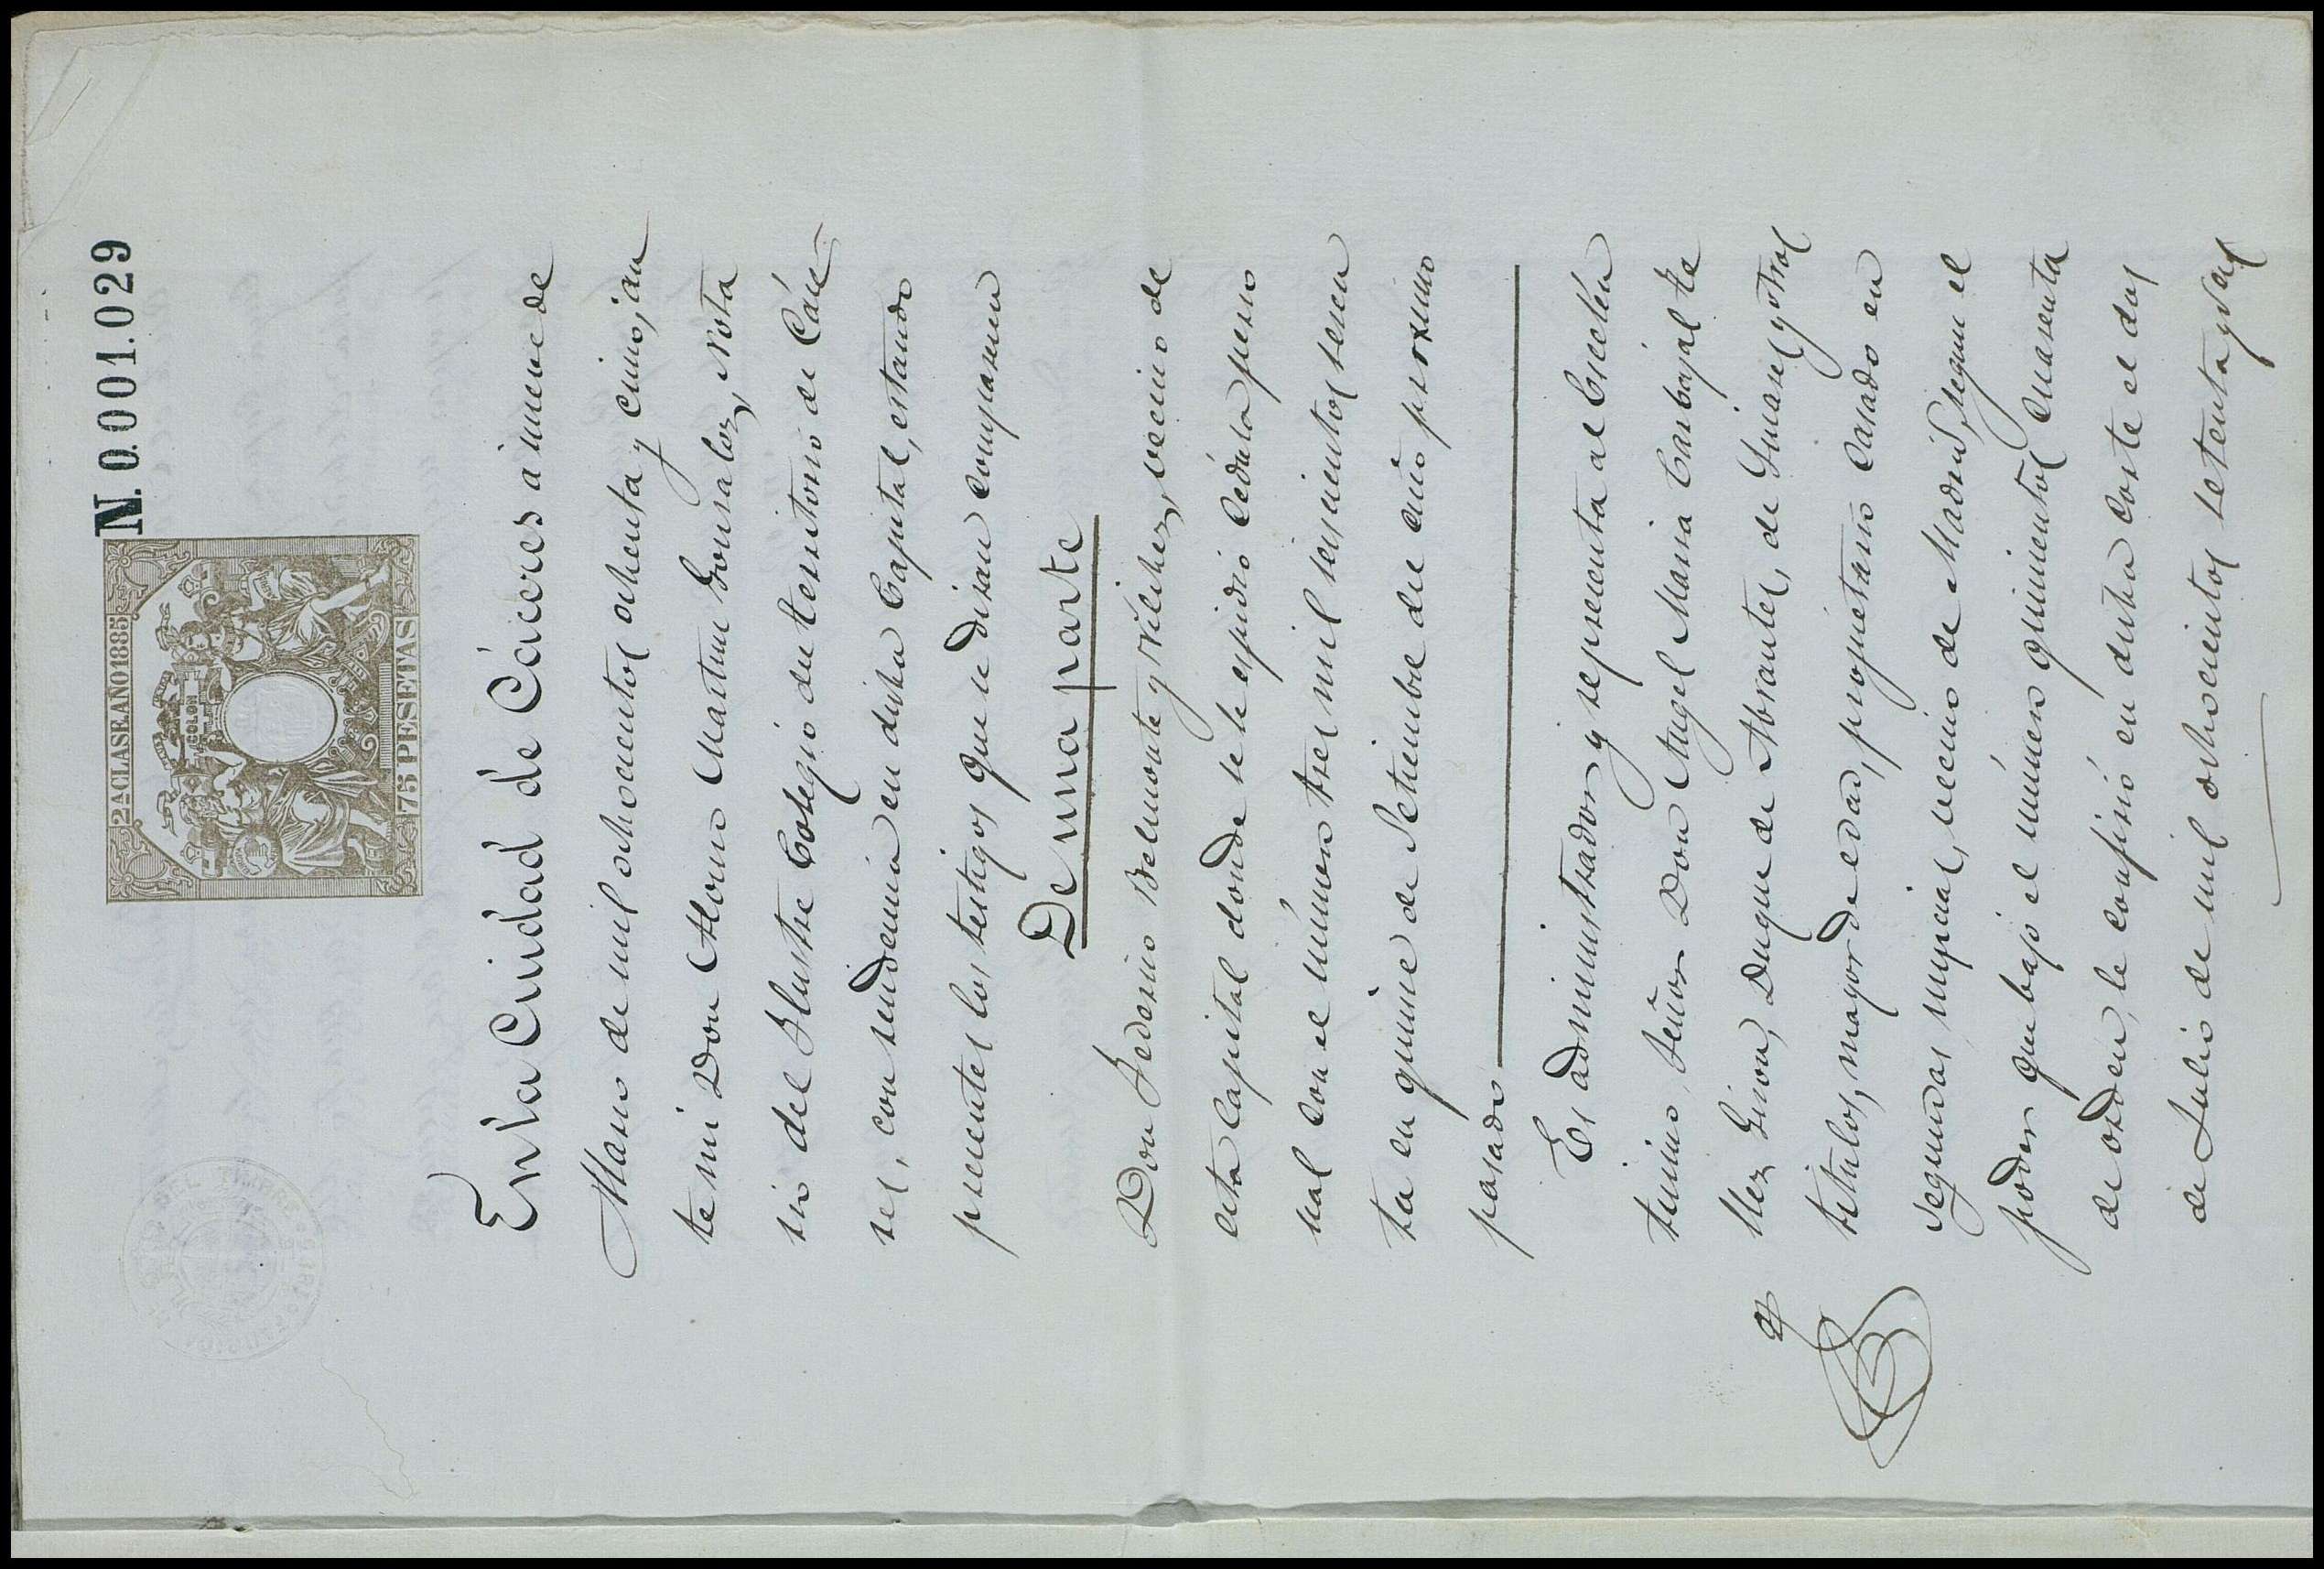 N. 0.001.029
2ª CLASE. AÑO 1885
COLON
75 PESETAS
En la Ciudad de Cáceres á nueve de
Marzo de mil ochocientos ochenta y cinco, an
te mi Don Alonso Martin Gonzalez, Nota
rio del Ilustre Colegio del territorio de Cáce
res, con residencia en dicha Capital, estando
presentes los testigos que se diran comparecen
De una parte
Don Federico Belmonte y Vilches, vecino de
esta Capital donde se le espidió cédula perso
nal con el número tres mil seiscientos sesen
ta en quince de Setiembre del año proximo
pasado
Es administrador y representa al Escelen
tisimo Señor Don Angel Maria Carbajal te
llez Giron, Duque de Abrantes, de Linares y otros
titulos, mayor de edad, propietario casado en
segundas nupcias, vecino de Madrid, segun el
poder que bajo el número quinientos cuarenta
de orden, le confirió en dicha Corte el dos
de Julio de mil ochocientos setenta y seis